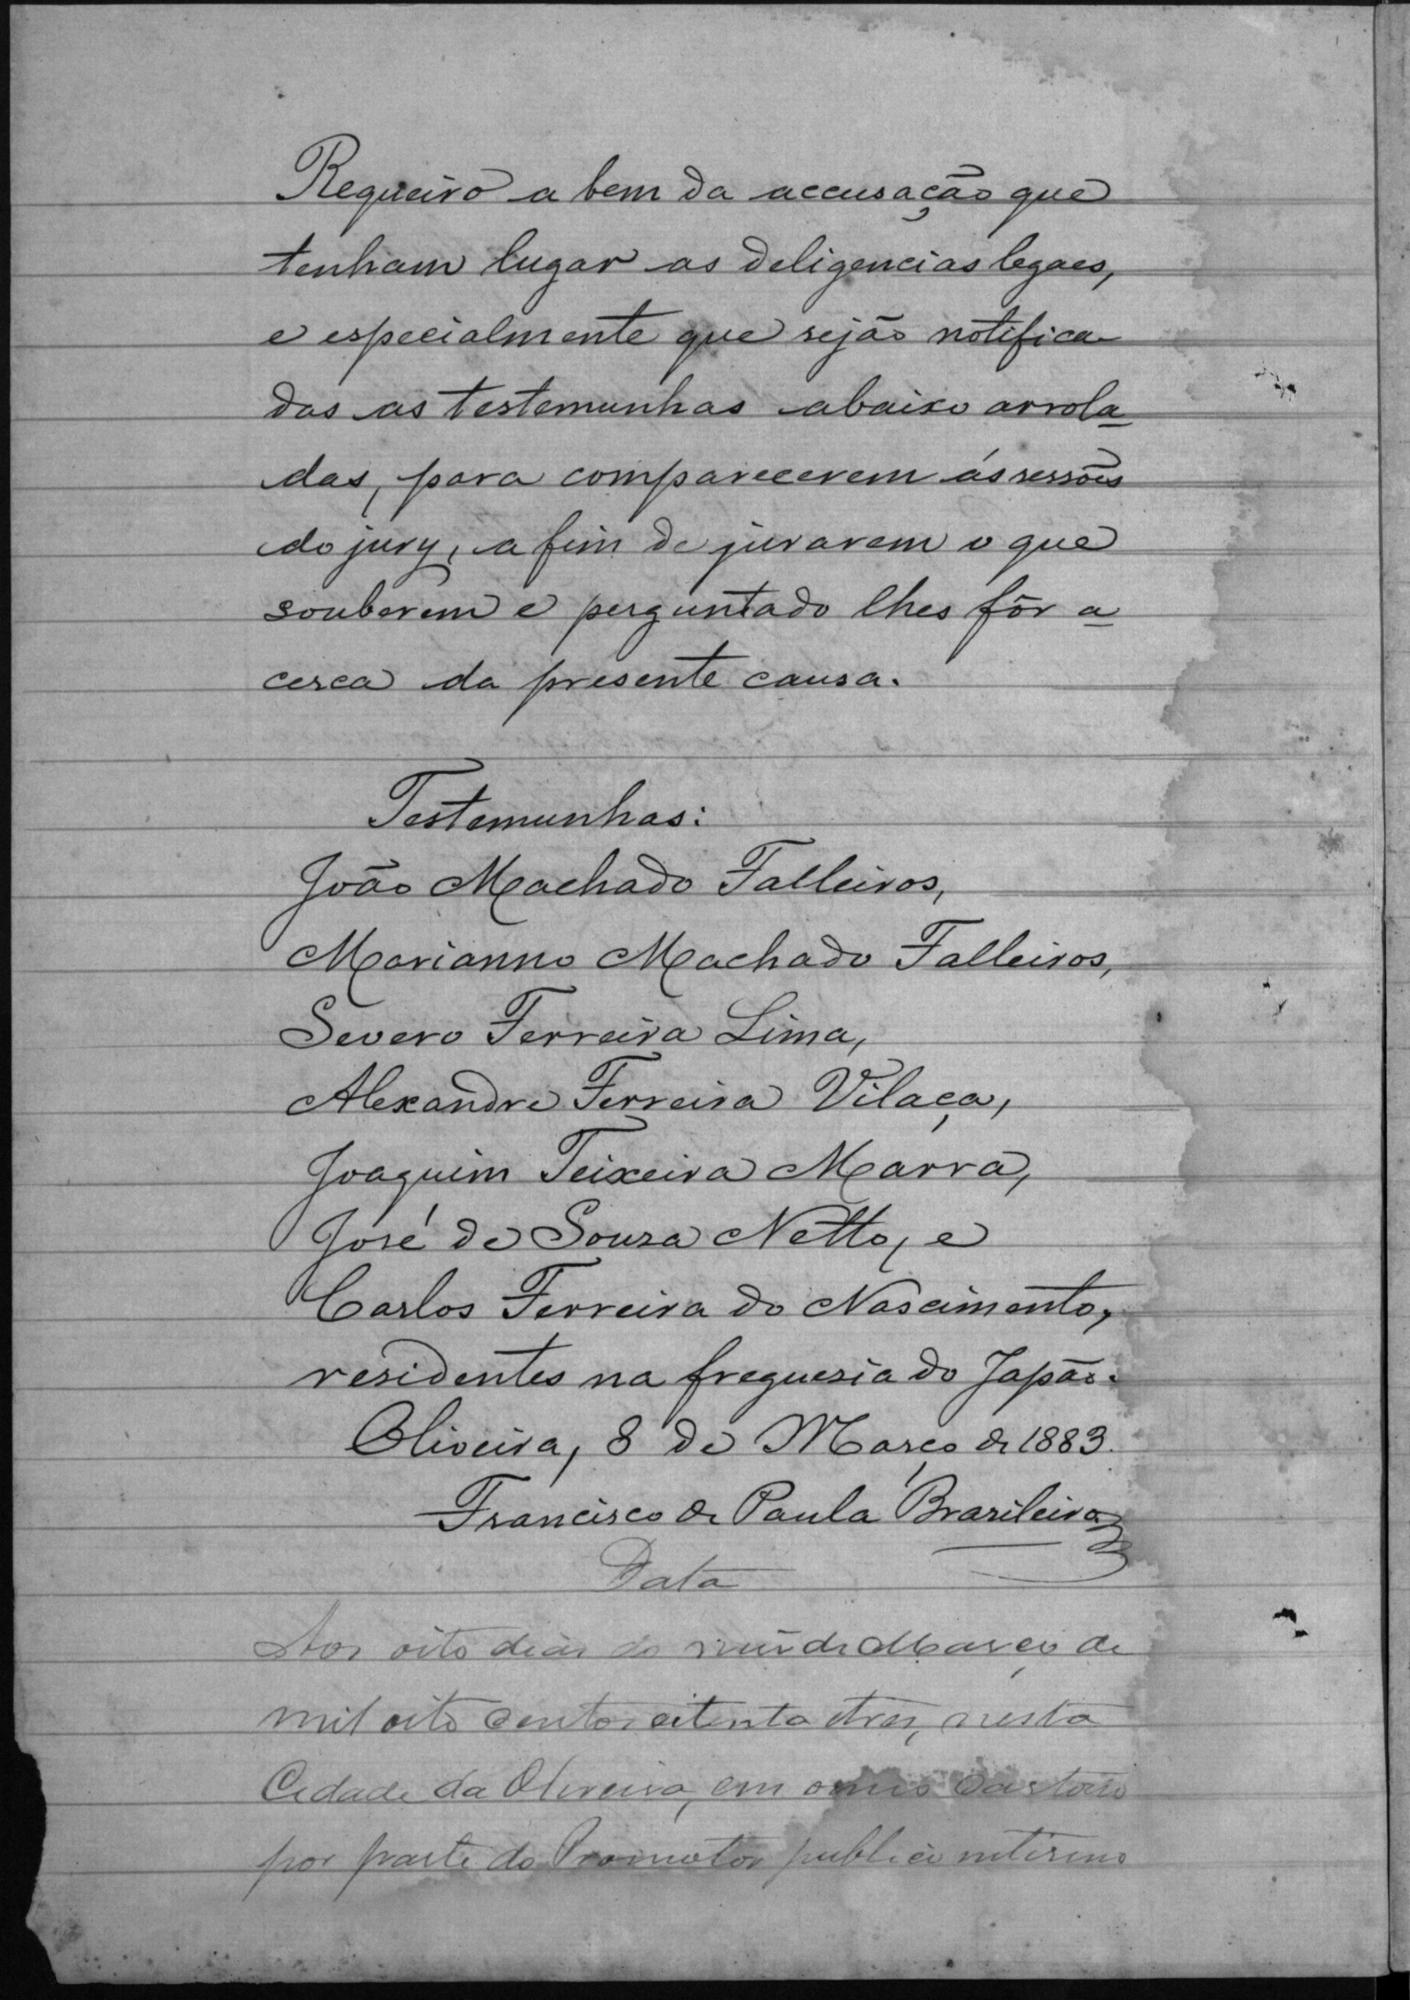 Requeiro a bem da accusação que
tenham lugar as deligencias legaes,
e especialmente que sejão notifica-
das as testemunhas abaixo arrola-
das, para comparecerem ás sessões
do jury, a fim de jurarem o que
souberem e perguntado lhes fôr a-
cerca da presente causa.
Testemunhas:
João Machado Falleiros,
Marianno Machado Falleiros,
Severo Ferreira Lima,
Alexandre Ferreira Vilaça,
Joaquim Teixeira Marra,
José de Souza Netto, e
Carlos Ferreira do Nascimento,
residentes na freguesia do Japão.
Oliveira, 8 de Março de 1883.
Francisco de Paula Brasileiro
Data
Aos oito dias do mes de Março de
mil oito centos oitenta e tres, nesta
Cidade da Oliveira, em o meo Cartorio
por parte do Promotor publico interino